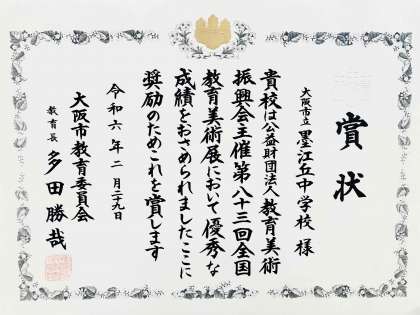 賞状
大阪市立 墨江丘中学校 様
貴校は公益財団法人教育美術
振興会主催第八十三回全国
教育美術展において優秀な
成績をおさめられましたここに
奨励のためこれを賞します
令和六年二月二十九日
大阪市教育委員会
教育長 多田勝哉